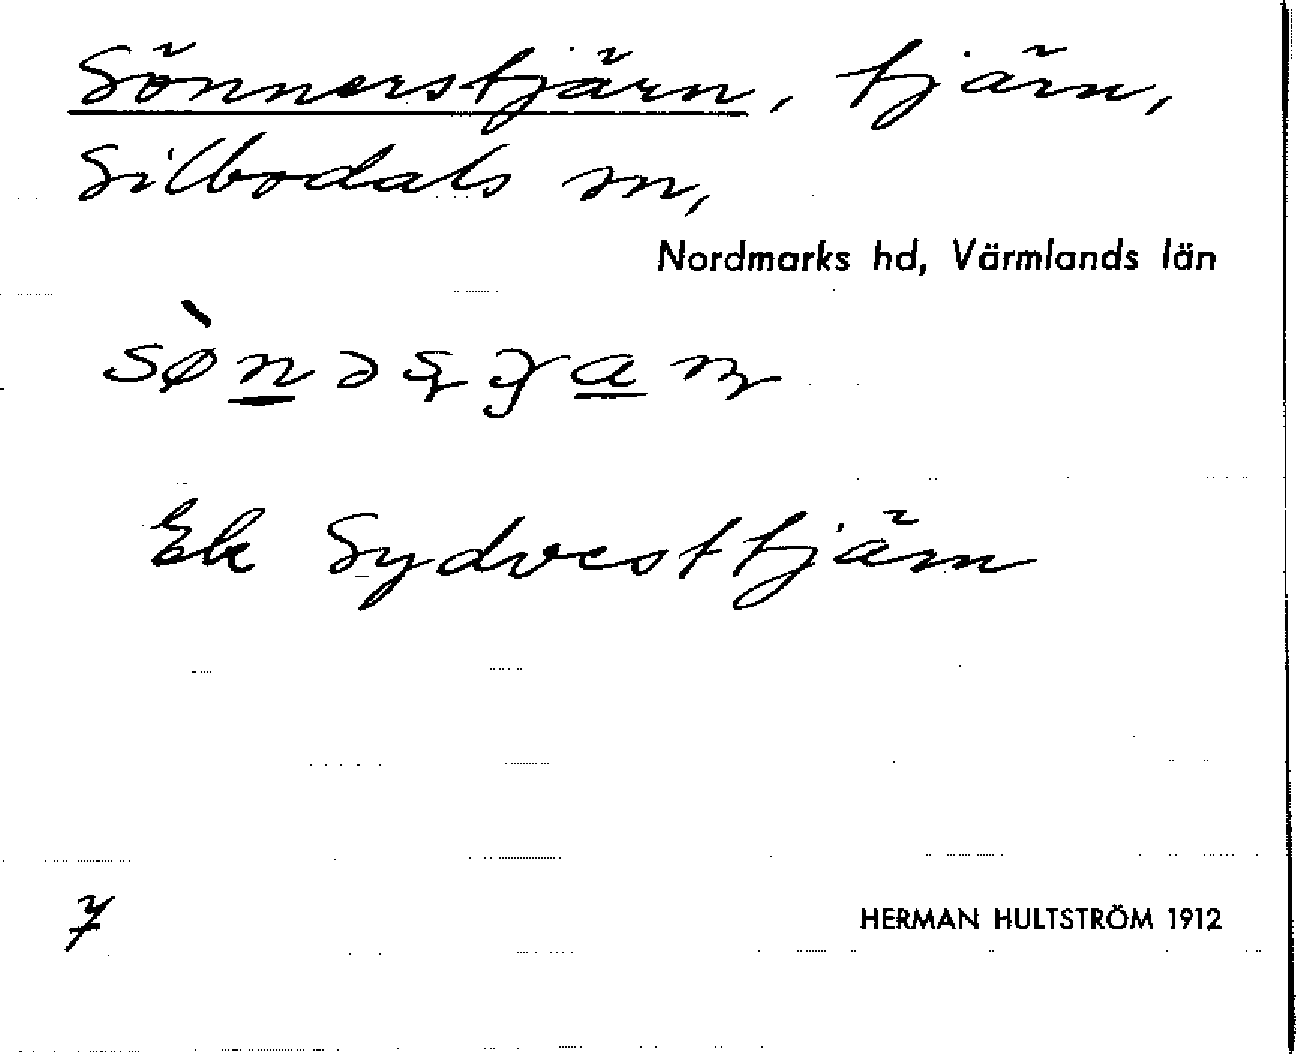 Sönnerstjärn, tjärn,
Silbodals sn,
Nordmarks hd, Värmlands län
Ek Sydvesttjärn
7
HERMAN HULTSTRÖM 1912